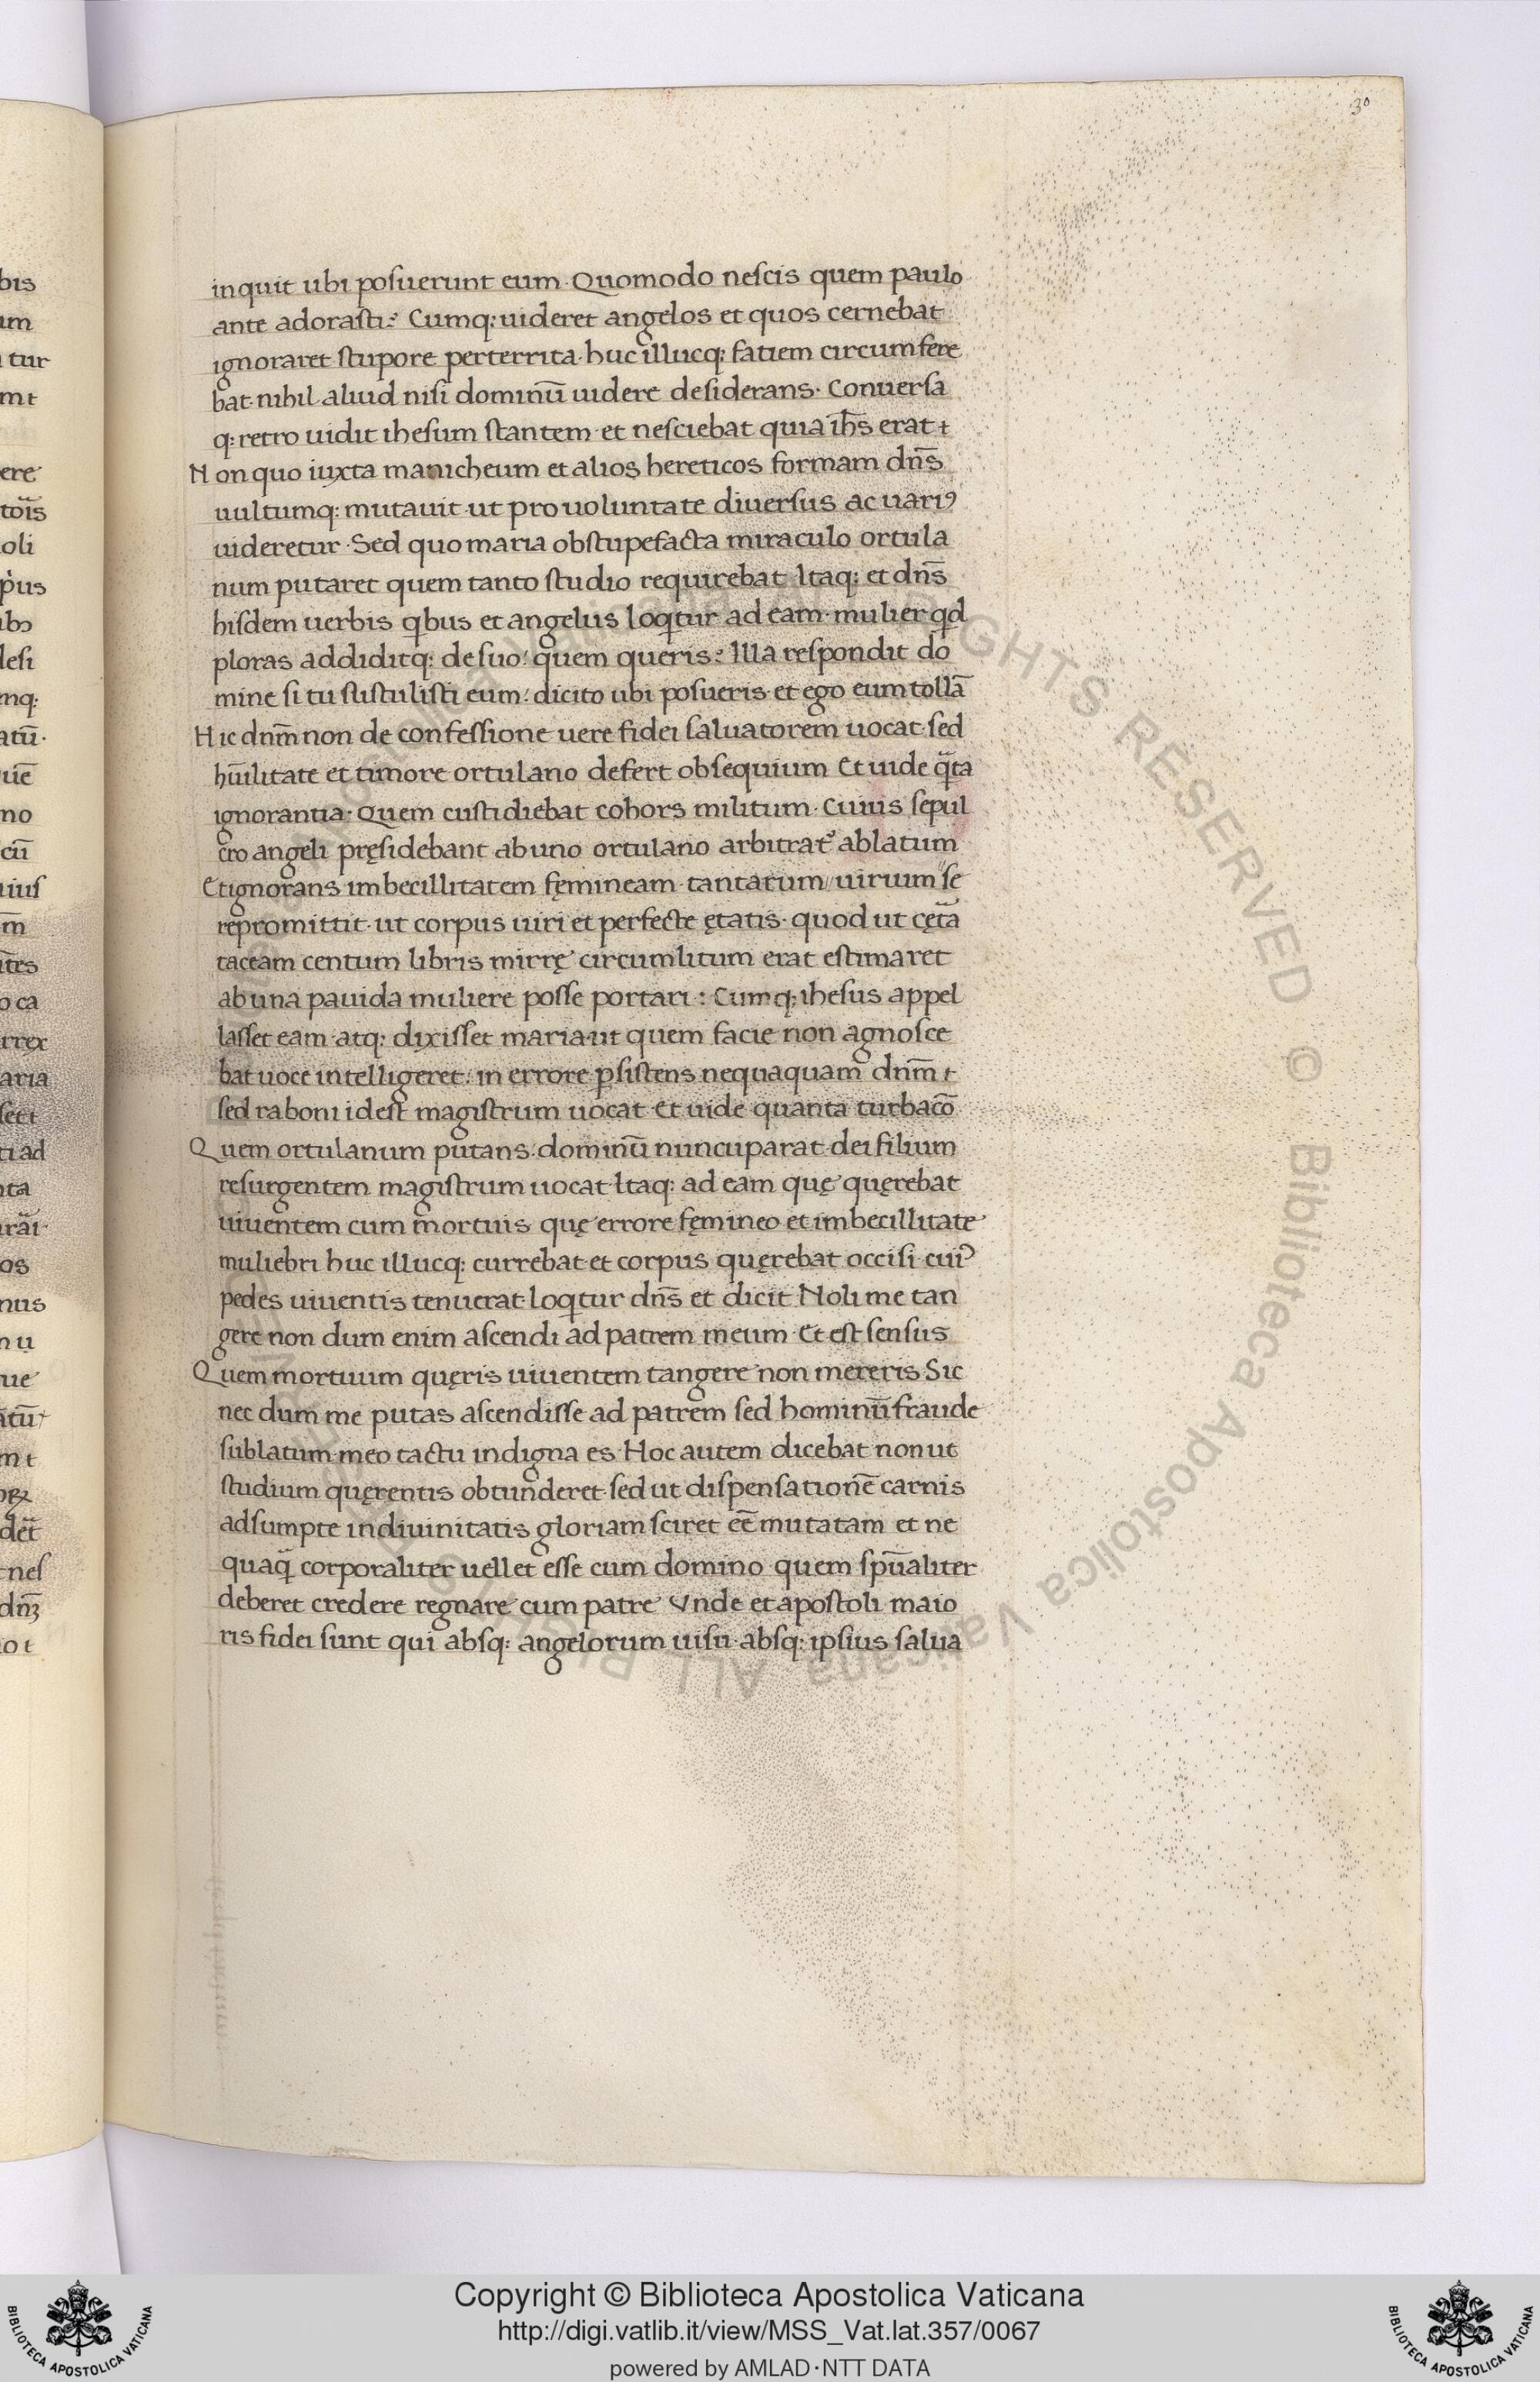 30
inquit ubi posuerunt eum· Quomodo nescis quem paulo
ante adorasti? Cumq; uideret angelos et quos cernebat
ignoraret stupore perterrita· huc illucq; fatiem circumfere
bat· nihil aliud nisi dominū uidere desiderans· Conuersa
q; retro uidit ihesum stantem· et nesciebat quia ih̄s erat
Non quo iuxta manicheum et alios hereticos formam dn̄s
uultumq; mutauit· ut pro uoluntate diuersus ac uariꝰ
uideretur· Sed quo maria obstupefacta miraculo ortula
num putaret quem tanto studio requirebat· Itaq; et dn̄s
hisdem uerbis qbus et angelus loqtur ad eam· mulier qd
ploras addiditq; de suo: quem queris? Illa respondit do
mine si tu sustulisti eum: dicito ubi posueris· et ego eum tollā
Hic dnm̄ non de confessione uere fidei saluatorem uocat· sed
hūilitate et timore ortulano defert obsequium Et uide q̄ta
ignorantia· Quem custidiebat cohors militum· Cuius sepul
cro angeli pręsidebant ab uno ortulano arbitrat᷒ ablatum
Et ignorans imbecillitatem fęmineam· tantarum uirium se
repromittit· ut corpus uiri et perfecte ętatis· quod ut cęta
taceam centum libris mirrę circumlitum erat estimaret
ab una pauida muliere posse portari: Cumq; ihesus appel
lasset eam· atq; dixisset maria· ut quem facie non agnosce
bat uoce intelligeret: in errore ꝑsistens nequaquam dnm̄
sed raboni idest magistrum uocat· Et uide quanta turbacō
Quem ortulanum putans: dominū nuncuparat· dei filium
resurgentem magistrum uocat· Itaq; ad eam quę quęrebat
uiuentem cum mortuis· quę errore fęmineo et imbecillitate
muliebri huc illucq; currebat· et corpus quęrebat occisi· cuiꝰ
pedes uiuentis tenuerat· loqtur dn̄s et dicit Noli me tan
gere non dum enim ascendi ad patrem meum· Et est sensus
Quem mortuum quęris uiuentem tangere non mereris· Sic
nec dum me putas ascendisse ad patrem sed hominū fraude
sublatum· meo tactu indigna es· Hoc autem dicebat non ut
studium quęrentis obtunderet· sed ut dispensationē carnis
adsumpte in diuinitatis gloriam sciret eē mutatam et ne
quaq̄ corporaliter uellet esse cum domino quem spūaliter
deberet credere regnare cum patre Vnde et apostoli maio
ris fidei sunt qui absq; angelorum uisu· absq; ipsius salua
Copyright © Biblioteca Apostolica Vaticana
http://digi.vatlib.it/view/MSS_Vat.lat.357/0067
powered by AMLAD·NTT DATA